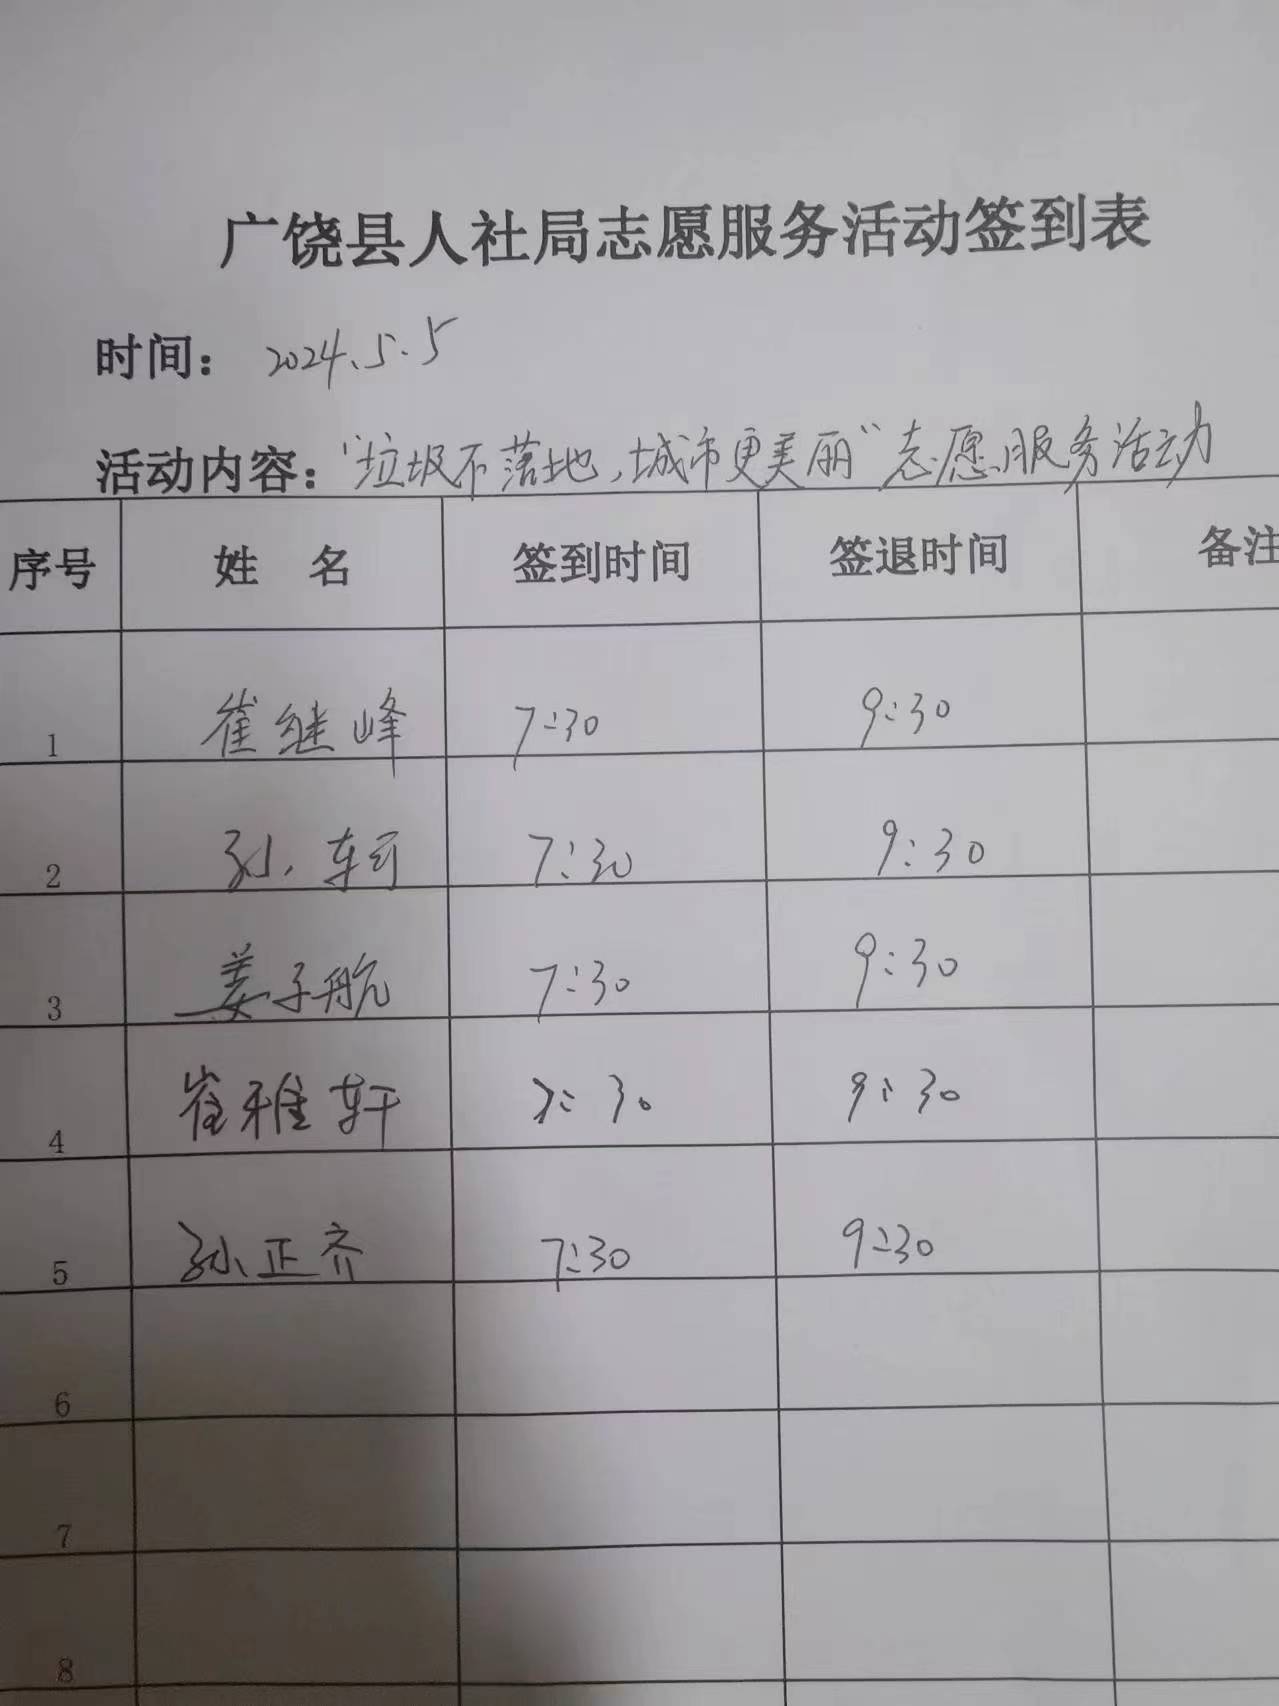 广饶县人社局志愿服务活动签到表
时间： 2024.5.5
活动内容：“垃圾不落地，城市更美丽”志愿服务活动
序号 姓 名 签到时间 签退时间 备注
1 崔继峰 7:30 9:30
2 孙轲 7:30 9:30
3 姜子航 7:30 9:30
4 崔雅轩 7:30 9:30
5 孙正齐 7:30 9:30
6
7
8